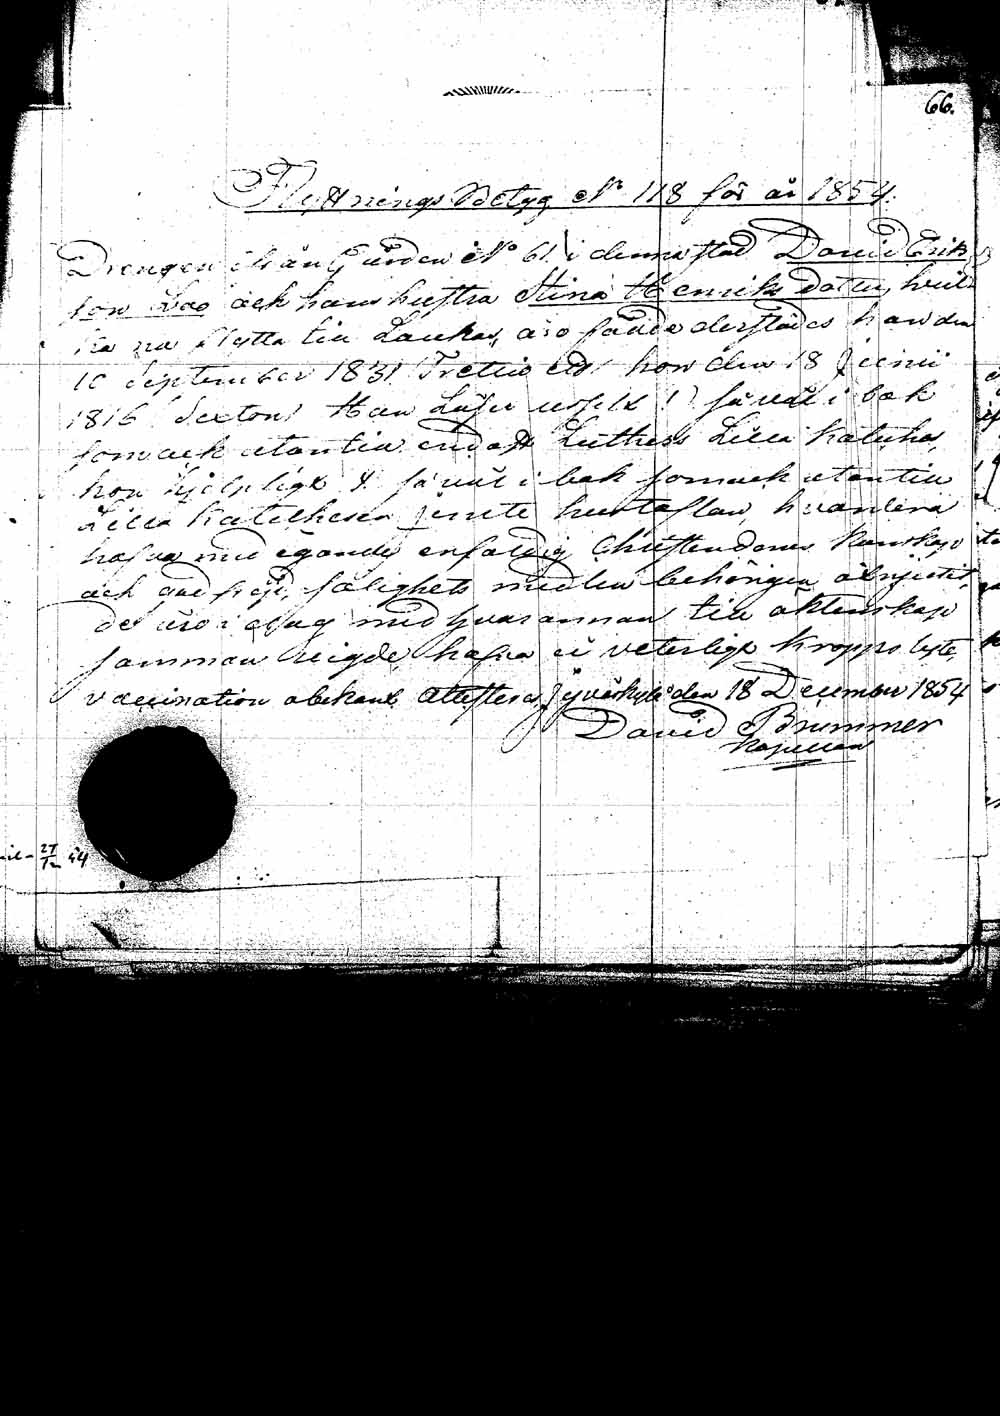 66.
Flyttnings Betyg N° 118 för år 1854.
Drengen ifrån Gården N° 61. i denna stad David Eriks
son Lao och hans hustru Stina Henriks dotter, hvil
ka nu flytta till Laukas, äro födde derstädes han den
10 September 1831 Trettio ett/ hon den 18 Junii
1816 /Sexton/ Han Läser uselt ! såväl i bok
som ock utantill endast Luthers Lilla Kateches,
hon hjelpligt såväl i bok som ock utantill
Lilla Katechesen jemte hustaflan, hvardera
hafva med ägande enfaldig Christendoms kunskap
och god frejd, salighets medlen behörigen åtnjutit,
de äro i dag med hvarannan till äktenskap
samman vigde, hafva ei veterligt kropps lyte,
vaccination obekant, Attesteras, Jyväskylä den 18 December 1854
David Brummer
Kapellan
27/12 54